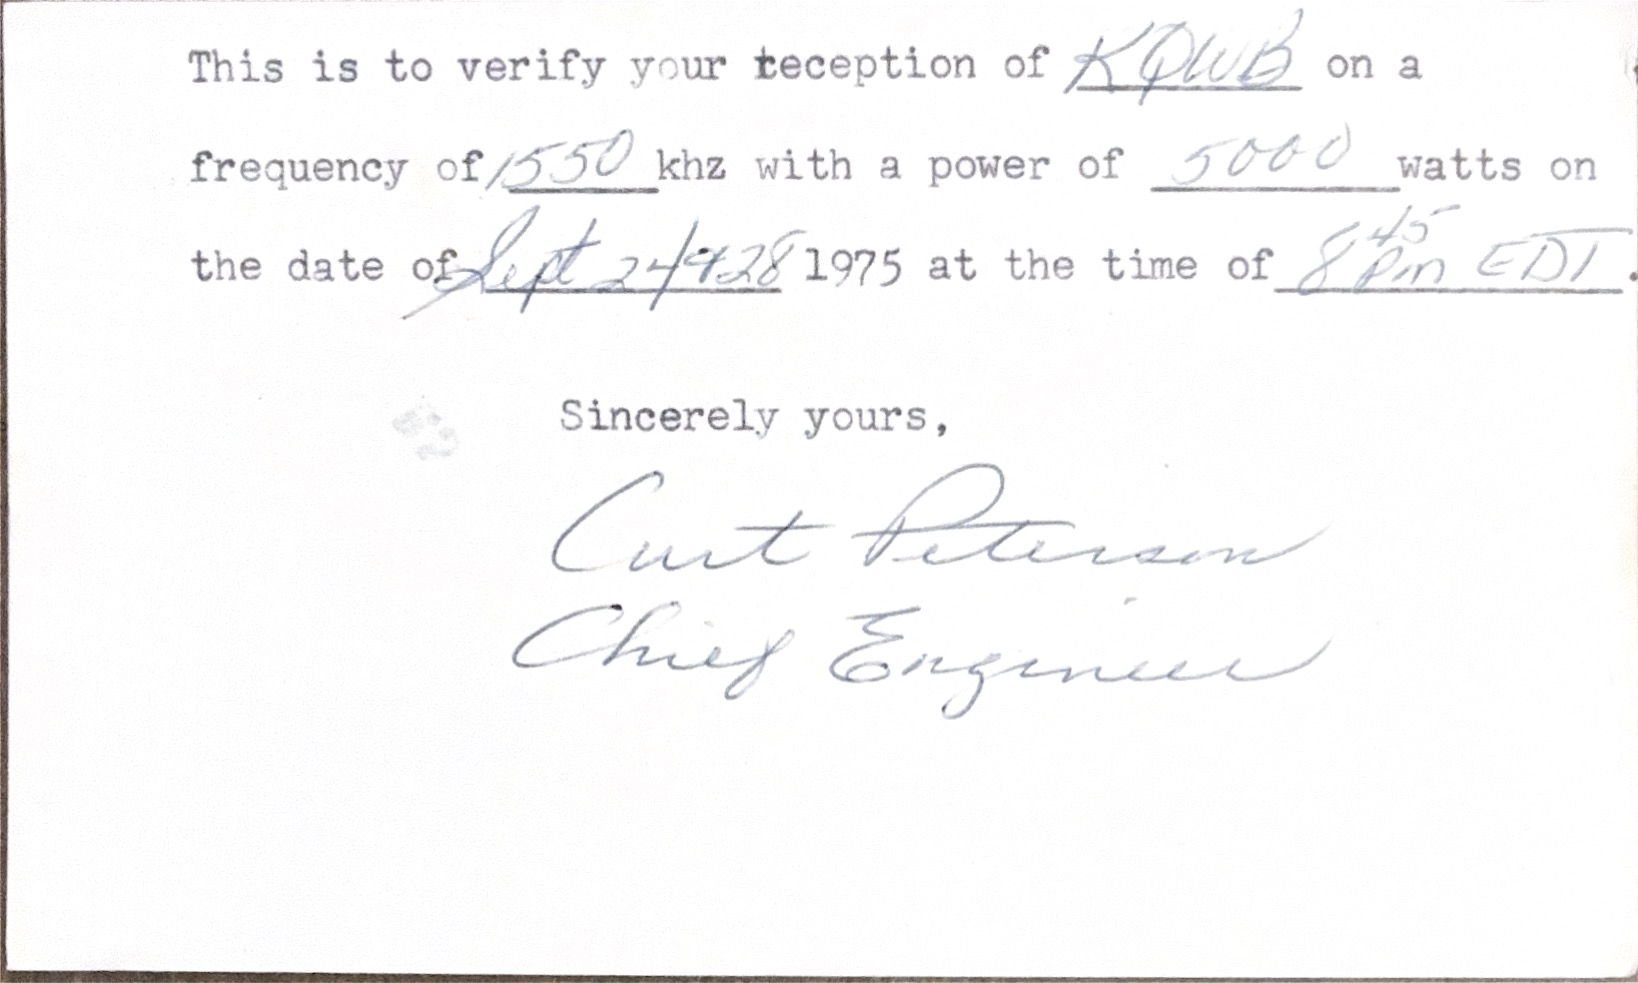 This is to verify your reception of KQWB on a
frequency of 1550 khz with a power of 5000 watts on
the date of Sept 24 + 28 1975 at the time of 8 45 pm EDT.
Sincerely yours,
Curt Peterson
Chief Engineer